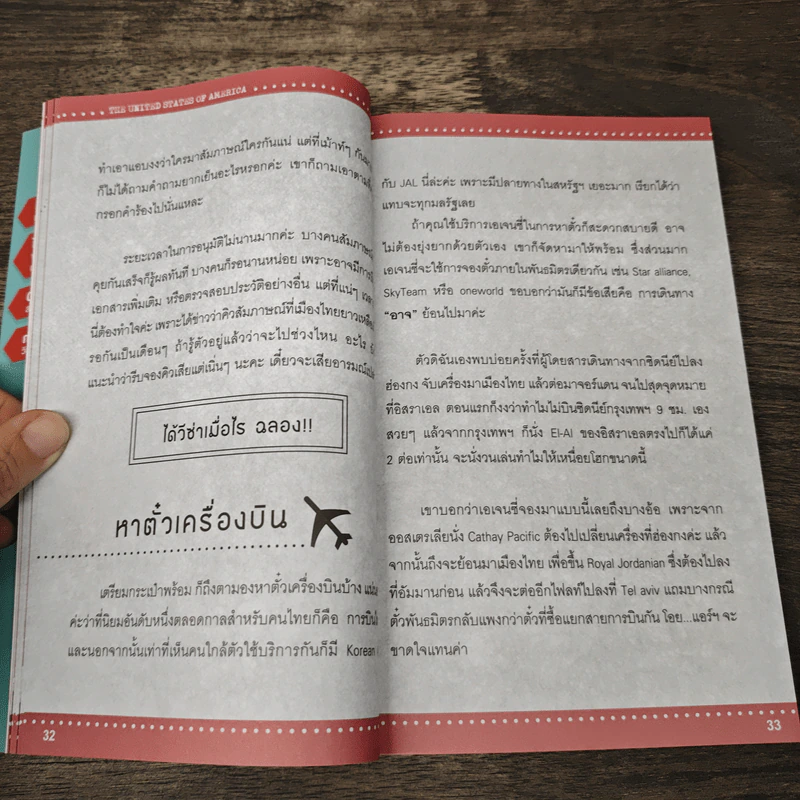 THE UNITED STATES OF AMERICA
ทำเอาแอบงงว่าใครมาสัมภาษณ์ใครกันแน่ แต่ที่เม้าท์ๆ กัน
ก็ไม่ได้ถามคำถามยากเย็นอะไรหรอกค่ะ เขาก็ถามเอาตาม
กรอกคำร้องไปนั่นแหละ
ระยะเวลาในการอนุมัติไม่นานมากค่ะ บางคนสัมภาษณ์
คุยกันเสร็จก็รู้ผลทันที บางคนก็รอนานหน่อย เพราะอาจมีการ
เอกสารเพิ่มเติม หรือตรวจสอบประวัติอย่างอื่น แต่ที่แน่ๆ
นี่ต้องทำใจค่ะ เพราะได้ข่าวว่าคิวสัมภาษณ์ที่เมืองไทยยาว
รอกันเป็นเดือนๆ ถ้ารู้ตัวอยู่แล้วว่าจะไปช่วงไหน อะไร
แนะนำว่ารีบจองคิวเสียแต่เนิ่นๆ นะคะ เดี๋ยวจะเสียอารมณ์
ได้วีซ่าเมื่อไร ฉลอง!!
หาตั๋วเครื่องบิน
เตรียมกระเป๋าพร้อม ก็ถึงตามองหาตั๋วเครื่องบินบ้าง
ค่ะว่าที่นิยมอันดับหนึ่งตลอดกาลสำหรับคนไทยก็คือ การบิน
และนอกจากนั้นเท่าที่เห็นคนใกล้ตัวใช้บริการกันก็มี Korean
32
กับ JAL นี่ล่ะค่ะ เพราะมีปลายทางในสหรัฐฯ เยอะมาก เรียกได้ว่า
แทบจะทุกมลรัฐเลย
ถ้าคุณใช้บริการเอเจนซี่ในการหาตั๋วก็สะดวกสบายดี อาจ
ไม่ต้องยุ่งยากด้วยตัวเอง เขาก็จัดหามาให้พร้อม ซึ่งส่วนมาก
เอเจนซี่จะใช้การจองตั๋วภายในพันธมิตรเดียวกัน เช่น Star alliance,
SkyTeam หรือ oneworld ขอบอกว่ามันก็มีข้อเสียคือ การเดินทาง
“อาจ” ย้อนไปมาค่ะ
ตัวดิฉันเองพบบ่อยครั้งที่ผู้โดยสารเดินทางจากซิดนีย์ไปลง
ฮ่องกง จับเครื่องมาเมืองไทย แล้วต่อมาจอร์แดน จนไปสุดจุดหมาย
ที่อิสราเอล ตอนแรกก็งงว่าทำไมไม่บินซิดนีย์กรุงเทพฯ 9 ชม. เอง
สวยๆ แล้วจากกรุงเทพฯ ก็นั่ง El-Al ของอิสราเอลตรงไปก็ได้แค่
2 ต่อเท่านั้น จะนั่งวนเล่นทำไมให้เหนื่อยโฮกขนาดนี้
เขาบอกว่าเอเจนซี่จองมาแบบนี้เลยถึงบางอ้อ เพราะจาก
ออสเตรเลียนั่ง Cathay Pacific ต้องไปเปลี่ยนเครื่องที่ฮ่องกงค่ะ แล้ว
จากนั้นถึงจะย้อนมาเมืองไทย เพื่อขึ้น Royal Jordanian ซึ่งต้องไปลง
ที่อัมมานก่อน แล้วจึงจะต่ออีกไฟลท์ไปลงที่ Tel aviv แถมบางกรณี
ตั๋วพันธมิตรกลับแพงกว่าตั๋วที่ซื้อแยกสายการบินกัน โอย...แอร์ฯ จะ
ขาดใจแทนค่า
33